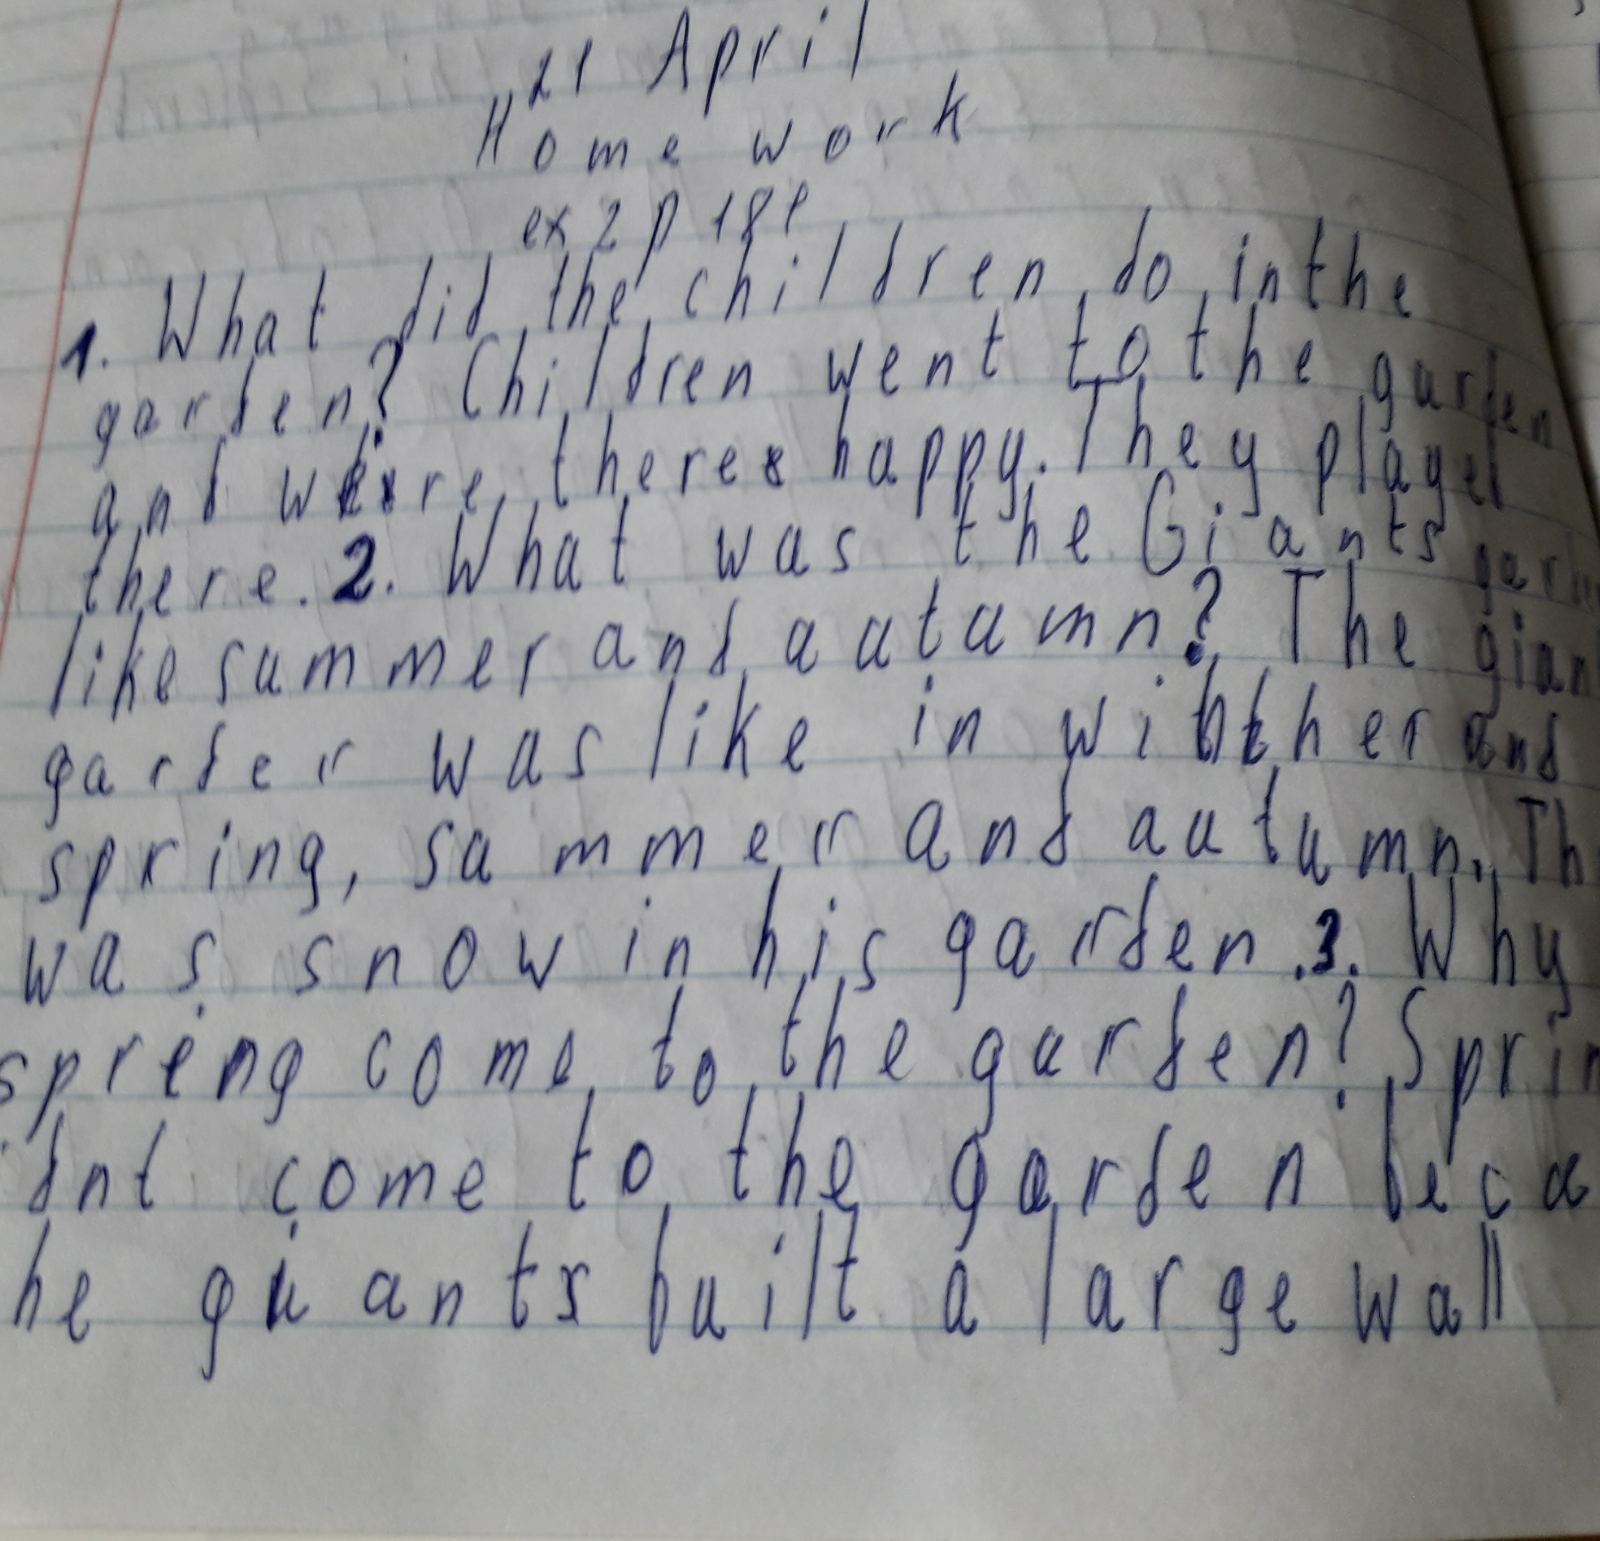 21 April
Home work
ex 2 p
1. What did the children do in the
garden? Children went to the garden
and were there happy. They played
there. 2. What was the Giants
like summer and autumn? The
garder was like in and
spring, summer and autumn.
was snow in his garden. 3. Why
spreng come to the garden?
come to the garden
built a large wall